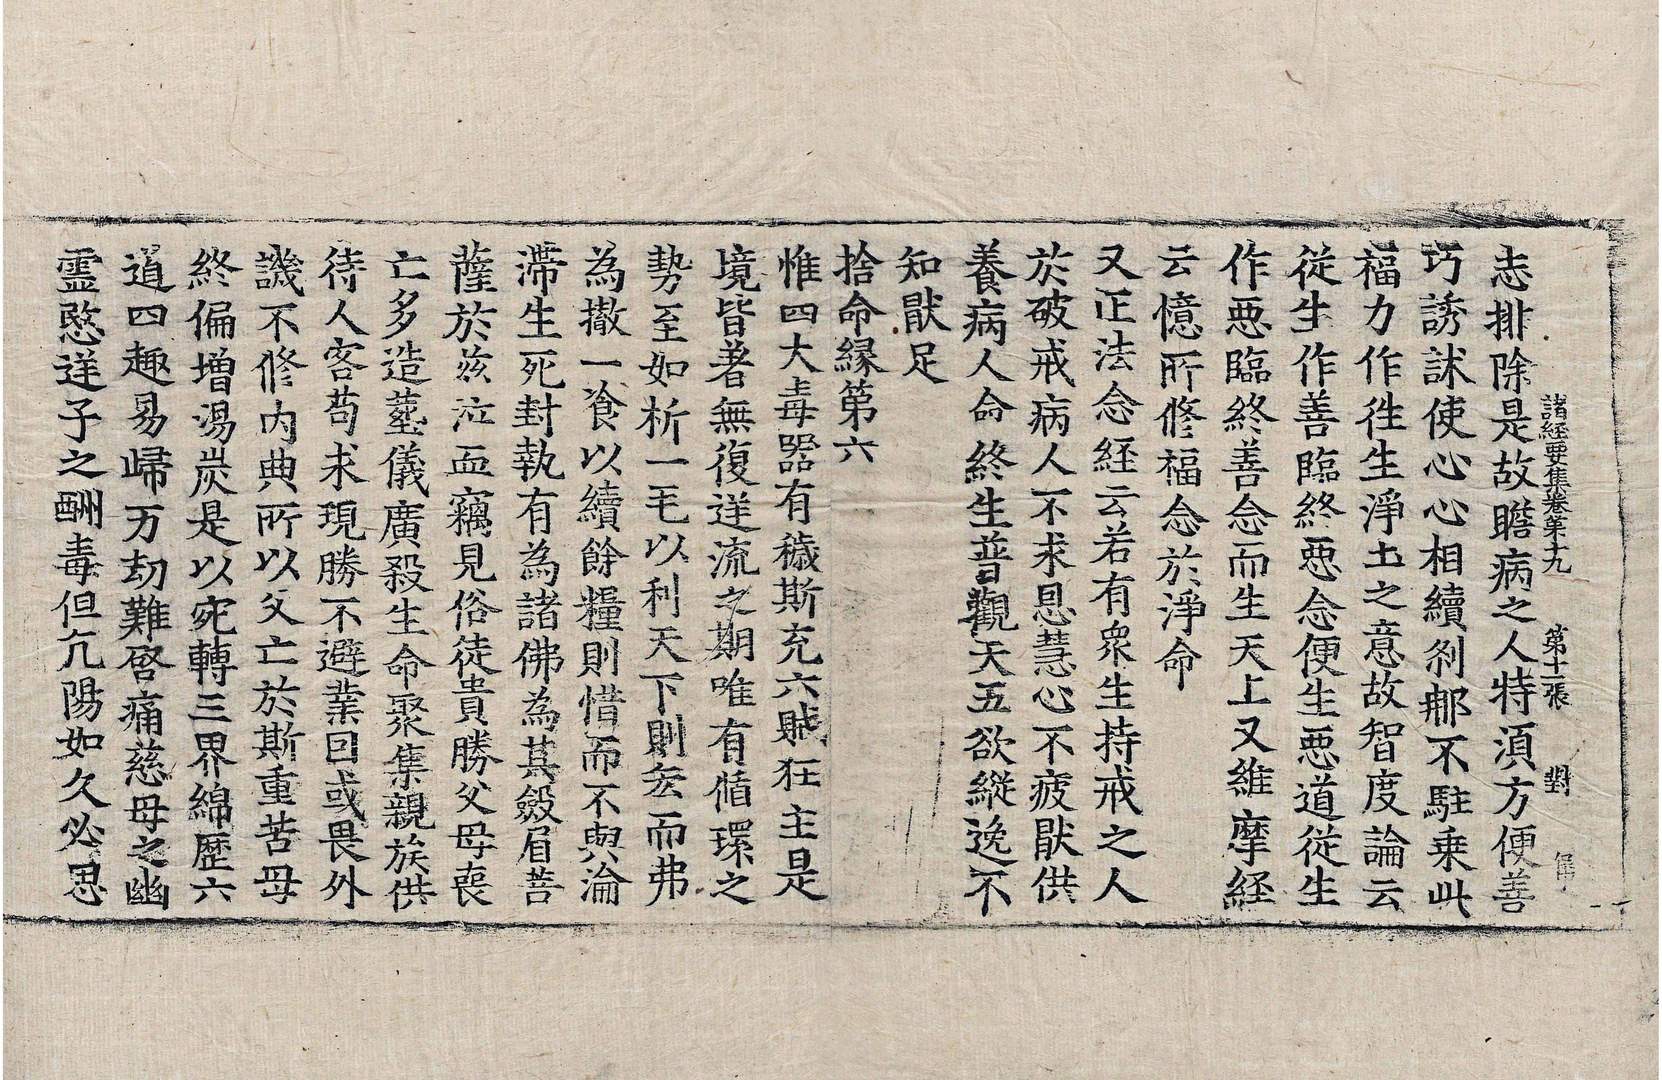 諸経要集卷第十九 第十一張 對
志排除是故瞻病之人特湏方便善
巧誘訹使心心相續刹那不駐乗此
福力作徃生淨土之意故智度論云
從生作善臨終惡念便生惡道從生
作惡臨終善念而生天上又維摩経
云憶所修福念於淨命
又正法念経云若有衆生持戒之人
於破戒病人不求恩慧心不疲猒供
養病人命終生普觀天五欲縱逸不
知猒足
捨命縁第六
惟四大毒器有穢斯充六賊狂主是
境皆著無復逆流之期唯有循環之
勢至如析一毛以利天下則𠫤而弗
為撤一飡以續餘糧則惜而不與淪
滯生死封執有為諸佛為其斂眉菩
薩於茲泣血竊見俗徒貴勝父母喪
亡多造葬儀廣殺生命聚集親族供
待人客苟求現勝不避業因或畏外
譏不修内典所以父亡於斯重苦母
終偏增湯炭是以宛轉三界綿歷六
道四趣易歸万劫難啓痛慈母之幽
靈愍逆子之酬毒但亢陽如久必思